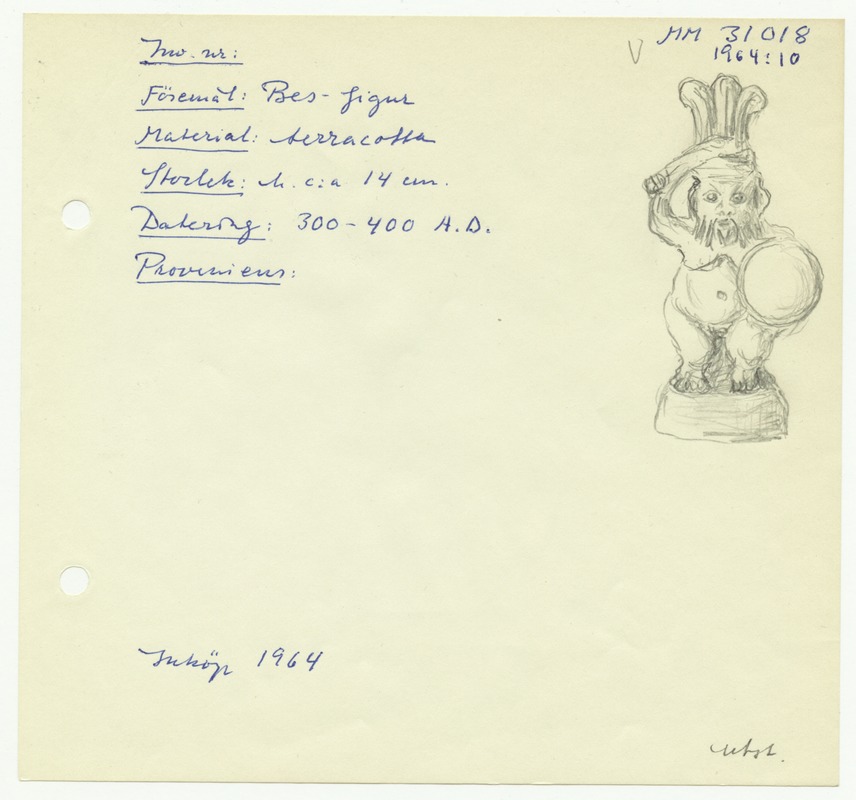 MM 31018
1964:10
V
Inv. nr:
Föremål: Bes-figur
Material: terracotta
Storlek: h. c:a 14 cm.
Datering: 300-400 A.D.
Proveniens:
Inköp 1964
utst.